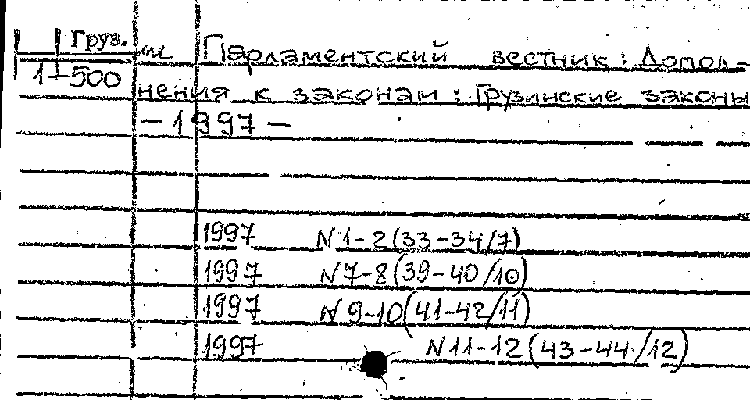 Груз.
1-500
Парламентский вестник: Допол-
нения к законам: Грузинские законы
— 1997 —
1997 N 1-2 (33-34/7)
1997 N 7-8 (39-40/10)
1997 N 9-10 (41-42/11)
1997 N 11-12 (43-44/12)